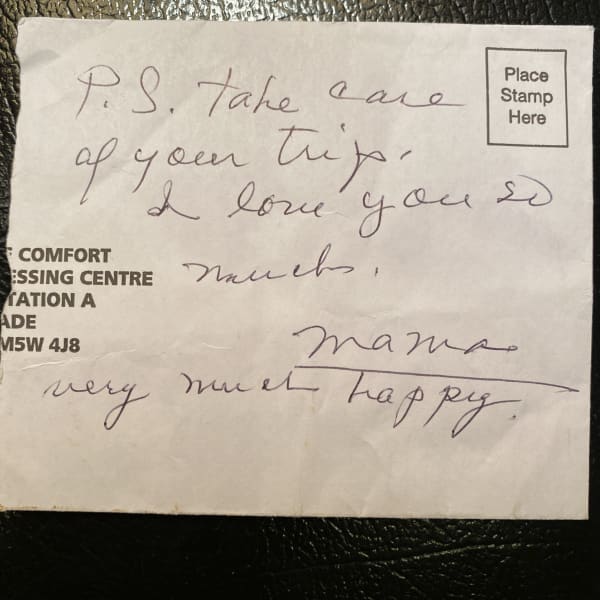 P.S. take care
of your trip.
I love you so
much.
mama
very much happy.
Place
Stamp
Here
COMFORT
ESSING CENTRE
TATION A
ADE
M5W 4J8